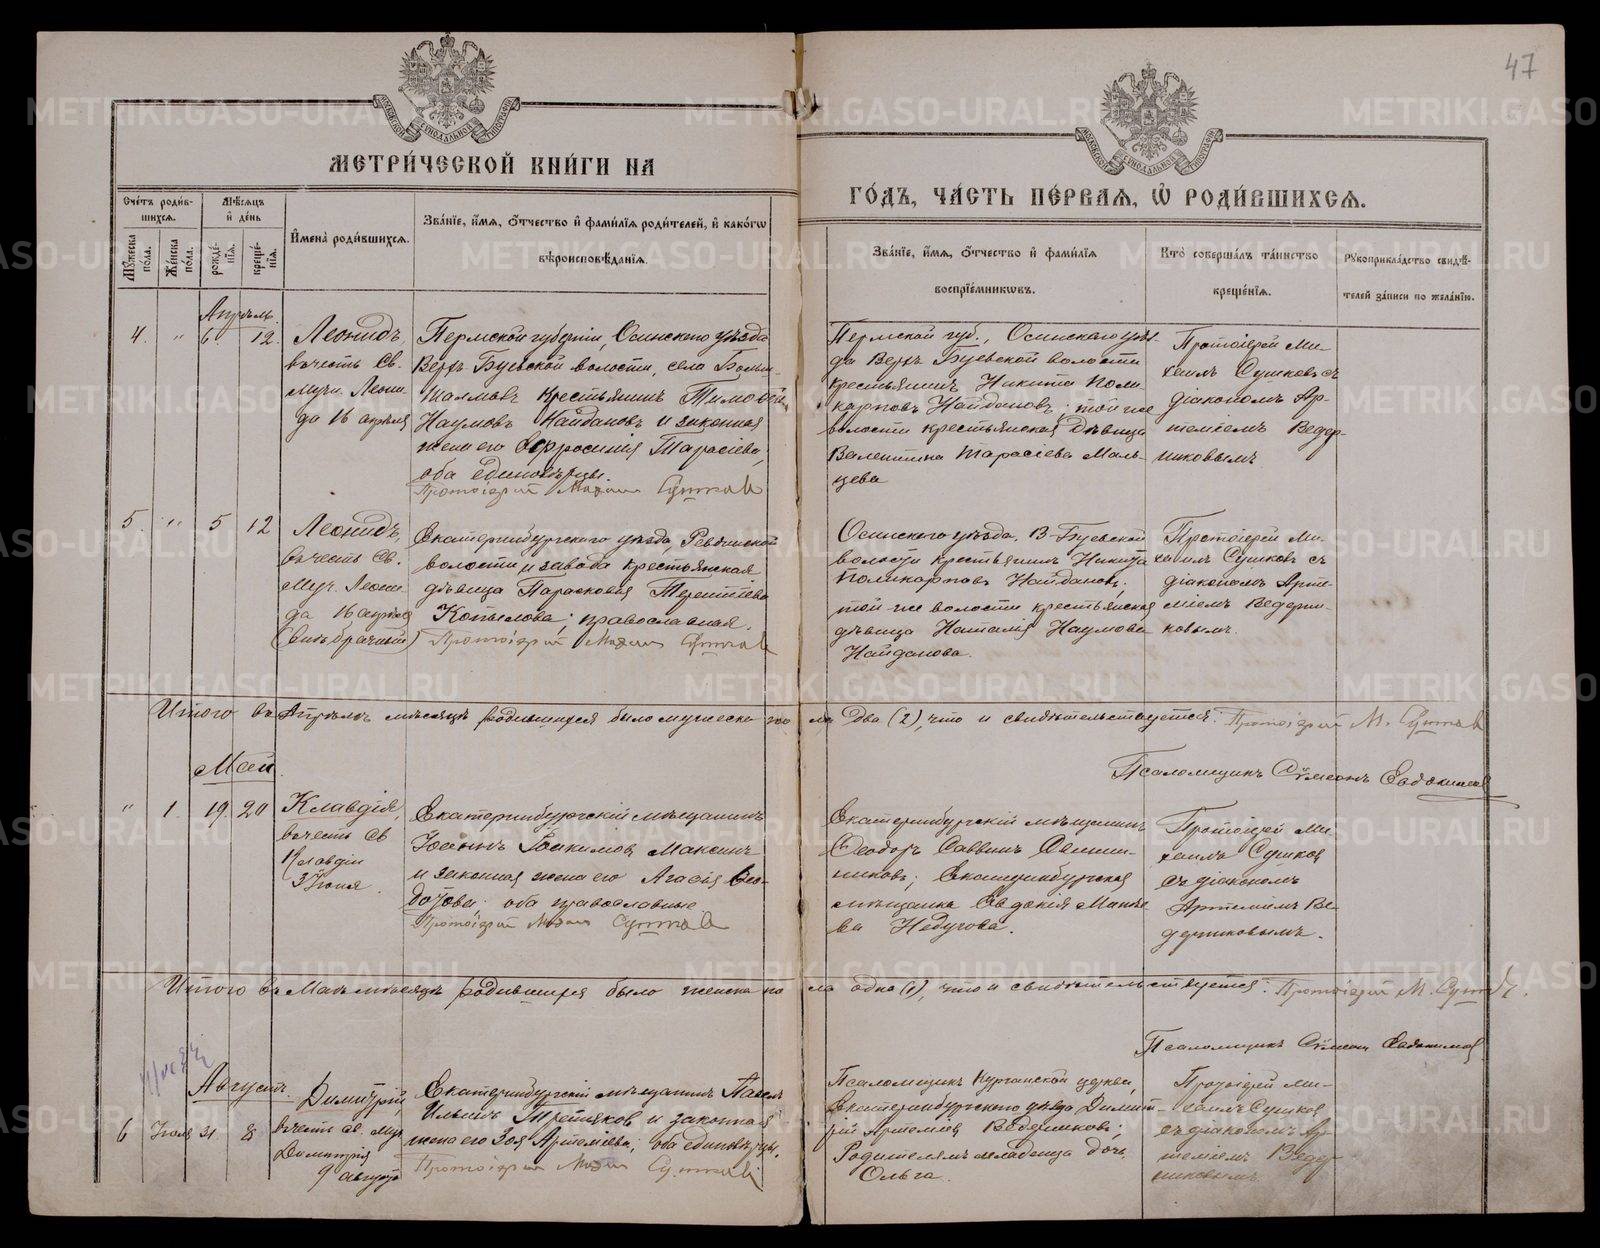 47
МЕТРИ́ЧЕСКОЙ КНИ́ГИ НА
ГО́ДЪ, ЧА́СТЬ ПЕ́РВАЯ, Ѽ РОДИ́ВШИХСЯ.
Сче́тъ роди́в-
шихся.
Му́жеска по́ла.
Же́нска по́ла.
Мѣ́сяцъ
и де́нь
рожде́нія.
креще́нія.
Имена̀ роди́вшихся.
Зва́ніе, и́мя, о́тчество и фами́лія роди́телей, и како́гѡ
вѣроисповѣ́данія.
Зва́ніе, и́мя, о́тчество и фами́лія
воспріе́мникѡвъ.
Кто̀ соверша́лъ та́инство
креще́нія.
Рукоприкла́дство свидѣ́-
телей за́писи по жела́нію.
Апрѣль
4. " 6. 12.
Леонидъ,
въ честь Св.
Муч. Леони-
да 16 апрѣля
Пермской губерніи, Осинскаго уѣзда
Верхъ-Буевской волости, села Больш-
крестьянинъ Тимофей
Наумовъ Найдановъ и законная
жена его Евфросинія Тарасіева,
оба единовѣрцы.
Протоіерей Михаилъ Сушковъ
Пермской губ., Осинскаго уѣз-
да Верхъ Буевской волости
крестьянинъ Никита Поли-
карповъ Найдановъ; той же
волости крестьянская дѣвица
Валентина Тарасіева Маль-
цева
Протоіерей Ми-
хаилъ Сушковъ съ
діакономъ Ар-
теміемъ Ведер-
никовымъ
5. " 5 12
Леонидъ,
въ честь Св.
Муч. Леони-
да 16 апрѣля
Екатеринбургскаго уѣзда, Ревдинской
волости и завода крестьянская
дѣвица Парасковія Терентіева
Копылова; православная.
Протоіерей Михаилъ Сушковъ
Осинскаго уѣзда, В-Буевской
волости крестьянинъ Никита
Поликарповъ Найдановъ;
той-же волости крестьянская
дѣвица Наталія Наумова
Найданова.
Протоіерей Ми-
хаилъ Сушковъ съ
діакономъ Арте-
міемъ Ведерни-
ковымъ.
Итого въ Апрѣлѣ мѣсяцѣ родившихся было мужеска по- ла два (2), что и свидѣтельствуется: Протоіерей М. Сушковъ
Псаломщикъ Сѵмеонъ Евдокимовъ
Май.
" 1. 19. 20
Клавдія,
въ честь Св
Клавдіи
3 Іюня.
Екатеринбургскій мѣщанинъ
Іоакимовъ Максинъ
и законная жена его Агафія Ѳео-
дотова: оба православные
Протоіерей Михаилъ Сушковъ
Екатеринбургскій мѣщанинъ
Ѳеодоръ Саввинъ
Екатеринбургская
мѣщанка Евдокія
Недугова.
Протоіерей Ми-
хаилъ Сушковъ
съ діакономъ
Артеміемъ Ве-
дерниковымъ.
Итого въ Маѣ мѣсяцѣ родившихся было женска по- ла одна (1), что и свидѣтельствуется: Протоіерей М. Сушковъ.
Псаломщикъ Сѵмеонъ Евдокимовъ
Августъ.
6 Іюля 31. 8
Димитрій,
въ честь Св. Муч
Димитрія
9 августа
Екатеринбургскій мѣщанинъ Павелъ
Ильинъ Третьяковъ и законная
жена его Зоя Артеміева; оба единовѣрцы.
Протоіерей Михаилъ Сушковъ
Псаломщикъ Курганской церкви,
Екатеринбургскаго уѣзда Димит-
рій Артеміевъ Ведерниковъ;
Родителямъ младенца дочь
Ольга.
Протоіерей Ми-
хаилъ Сушковъ
съ діакономъ Ар-
теміемъ Ведер-
никовымъ